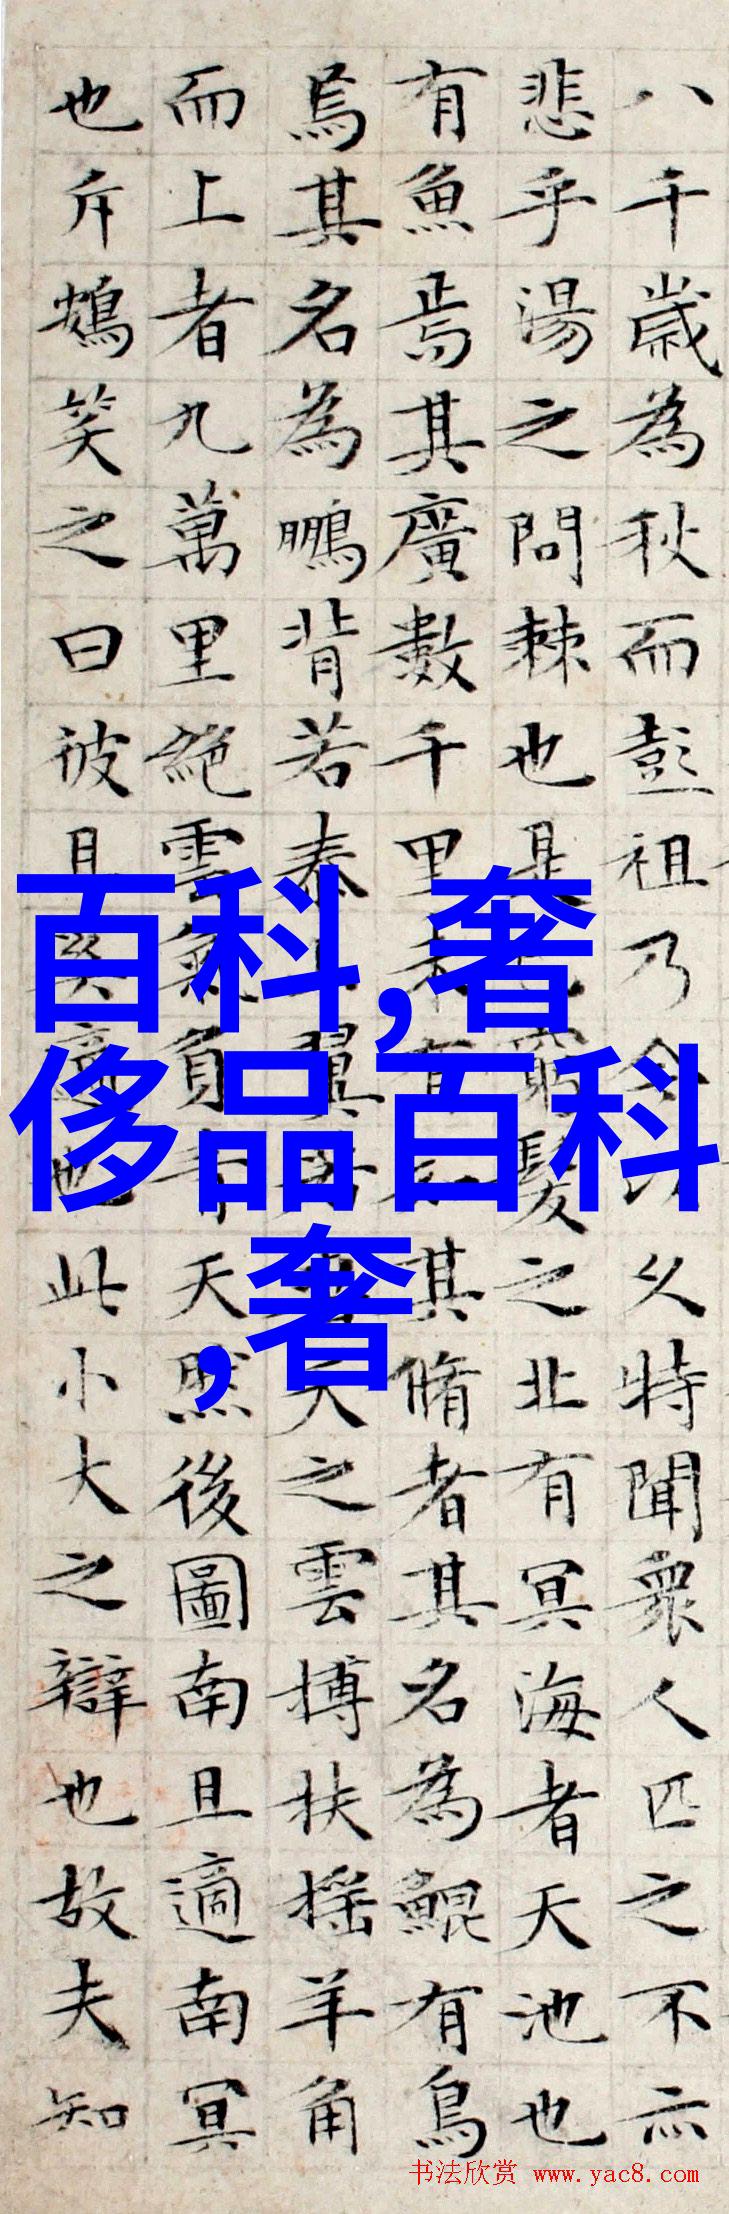 八千歲為秋而彭祖乃今以久特聞衆人匹之不亦
悲乎湯之問棘也是已窮髮之北有冥海者天池也
有魚焉其廣數千里未有知其脩者其名為鯤有鳥
焉其名為鵬背若泰山翼若垂天之雲搏扶摇羊角
而上者九萬里絕雲氣負青天然後圖南且適南冥
也斥鴳笑之曰彼且奚適也此小大之辯也故夫知
百科,奢
侈品百科
,奢
书法欣赏 www.yac8.com